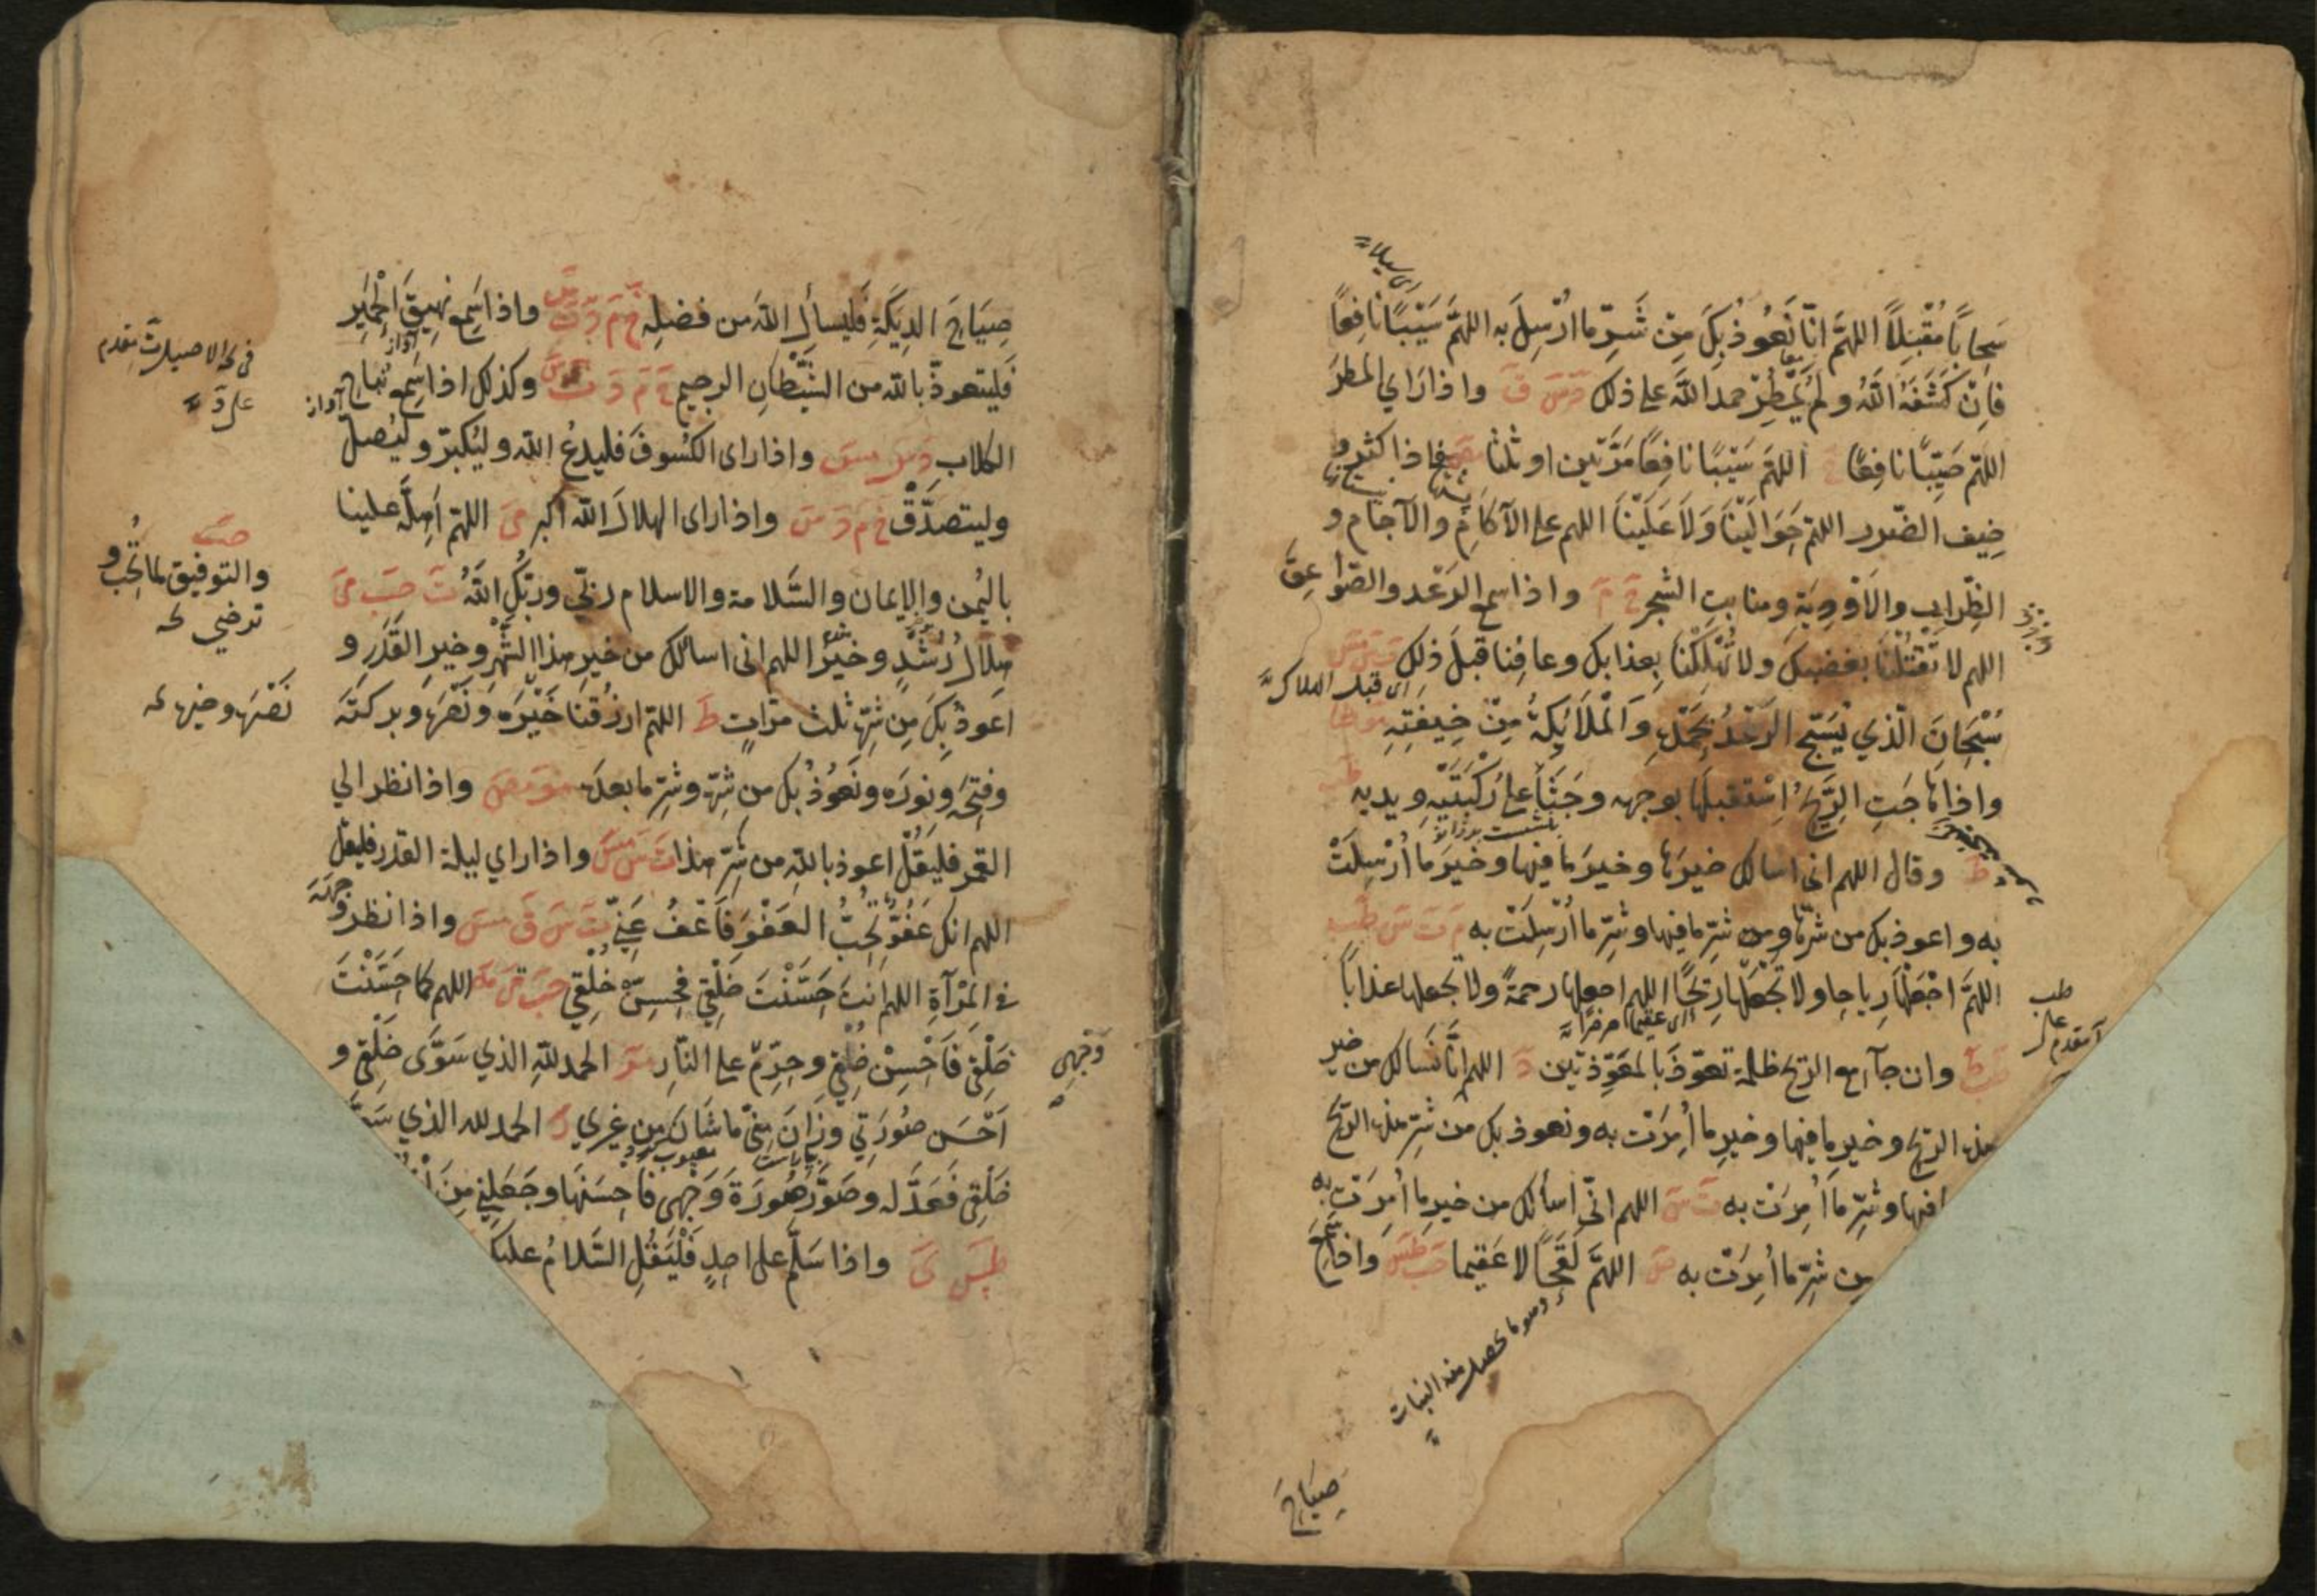 سَحابًا مُقْبِلاً اللهمَّ انّا نَعُوذُ بِكَ مِنْ شَرِّ ما اُرْسِلَ به اللهمَّ سَيْبًا نافِعًا
فاِنْ كَشَفَهُ اللّٰهُ ولم يُمْطِرْ حمد اللّٰهَ على ذلك د س ق واذا راي المطرَ
اللهم صَيِّبًا نافِعًا خ اللهم سَيْبًا نافِعًا مَرَّتين او ثلثا مص فاذا كثر و
خِيف الضّرر اللهم حَوَالَيْنَا وَلاَ عَلَيْنَا اللهم على الآكَامِ والآجام و
الظِّرابِ والاَوْدِيَةِ ومنابتِ الشجرِ خ م واذا سمع الرَعْد والصّواعِقَ
اللهم لا تَقْتُلْنَا بغضبِكَ ولا تُهْلِكْنا بِعذابِك وعافِنا قبلَ ذلِك ت س مس
اى قبل الهلاك
سُبْحَانَ الّذي يُسَبِّح الرَعْدُ بِحَمْدِهِ وَالْمَلاَئِكةُ مِنْ خِيفتِهِ مو طا
واذا هَاجَتِ الرِّيحُ اسْتقبلَها بوجهه وجَثَا على رُكْبَتَيْهِ ويديه طب
ط وقال اللهم اني اسالك خيرَها وخيرَ ما فيها وخيرَ ما اُرْسِلَتْ
به واعوذ بك من شرِّها ومن شرِّ ما فيها وشرِّ ما اُرْسِلَتْ به م ت س طب
اللهمَّ اجْعَلْهَا رِياحا ولا تَجْعَلْهَا رِيحًا اللهم اجعلها رحمةً ولا تجعلها عذابًا
طب ط وان جآء مع الريح ظلمة تعوّذَ بالمعَوِّذتين د اللهم انَّا نَسالك من خيرِ
هذه الريح وخيرِ ما فيها وخيرِ ما اُمِرَت به ونعوذ بك من شرِّ هذه الريح
افيها وشرِّ ما اُمِرَتْ به ت س اللهم انّى اسألك من خيرِ ما اُمِرَتْ به
مِن شرِّ ما اُمِرَت به ص اللهمَّ لَقَحًا لا عَقِيما حب طس واذا سمع
وهو ما يحصل منه النبات
صِيَاحَ
صِيَاحَ الدِيَكَةِ فَليسألِ اللّٰهَ من فضلِهِ خ م د ت س واذا سَمِع نهِيقَ الْحَمِيرِ
فَليتعوذّ باللّٰه من الشّيْطانِ الرجيم خ م د ت س وكذلك اذا سَمِع نُباح
آواز
الكلاب د س مس واذا راى الكُسُوفَ فليدعُ اللّٰه وليُكبرّ وليُصلّ
وليتصدَّقْ خ م د س واذا راى الهلالَ اللّٰه اكبر مى اللهم اَهِلَّهُ علينا
باليُمن والاِيمان والسَّلامة والاسلام ربّي وربُّكِ اللّٰهُ ت حب مى
حب
والتوفيق لما تُحِبُّ و
ترضى
هلالُ رُشْدٍ وخيرٌ اللهم انى اسالك من خيرِ هذا الشّهْرِ وخيرِ القَدَرِ و
اعوذُ بِكَ مِن شرِّهِ ثلث مرّاتٍ ط اللهم ارزُقنَا خَيْرَه ونَصْرَه وبركتَه
وفتحَه ونورَه ونَعُوذُ بك مِن شرِّه وشرِّ ما بعدَه مو مص واذا نظر الي
القمرِ فليَقُلْ اعوذ باللّٰهِ من شرِّ هذا ت س مس واذا راي ليلة القدر فليقل
اللهم انك عَفُوٌّ تُحِبُّ العَفْوَ فَاعْفُ عَنِّي ت س ق مس واذا نظر وجهَهُ
في المْرْآةِ اللهم انتَ حَسَّنْتَ خَلْقِي فحسِّنْ خُلْقِي حب مى اللهم كما حَسَّنْتَ
خَلْقى فَاَحْسِنْ خُلْقِي وحرِّمْ وَجْهِى على النّارِ مر الحمد للّٰهِ الذي سَوَّى خَلْقِى و
اَحْسَن صُورَتِي وزَانَ مِنّى ما شَانَ مِن غيري ر الحمد للّٰه الذي سَوَّى
خَلْقِى فَعَدَّله وصَوَّرَ صُورَة وَجْهِى فاَحسَنَها وجَعَلنِي مِنَ
طس ى واذا سَلَّم على احدٍ فَلْيَقُلِ السَّلامُ عليكم